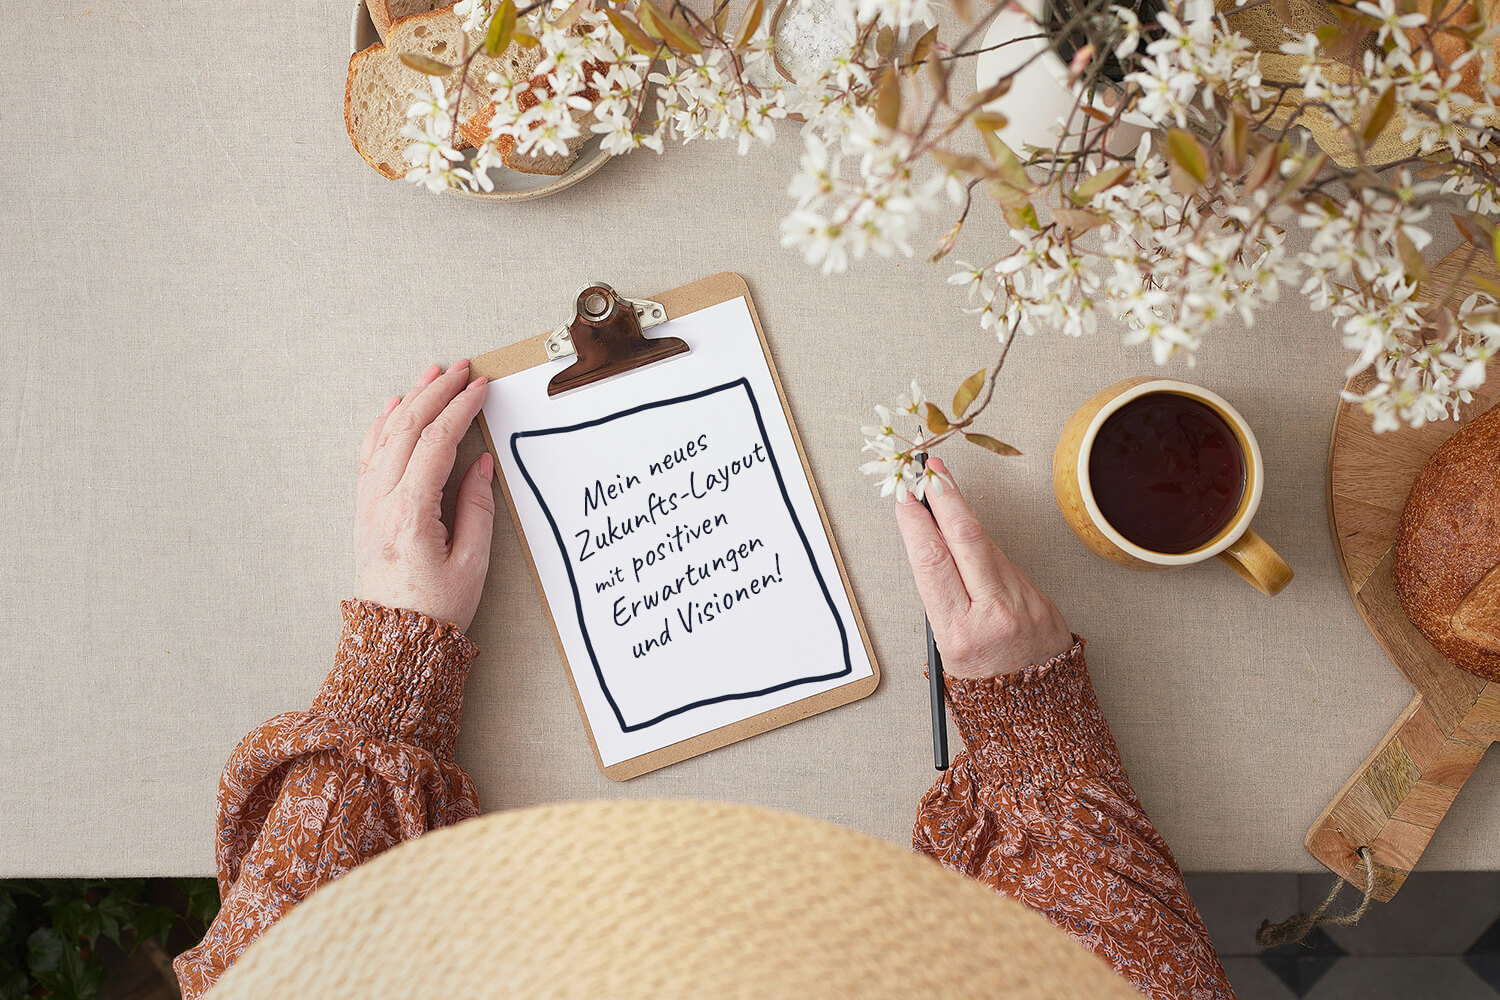 Mein neues
Zukunfts-Layout
mit positiven
Erwartungen
und Visionen!